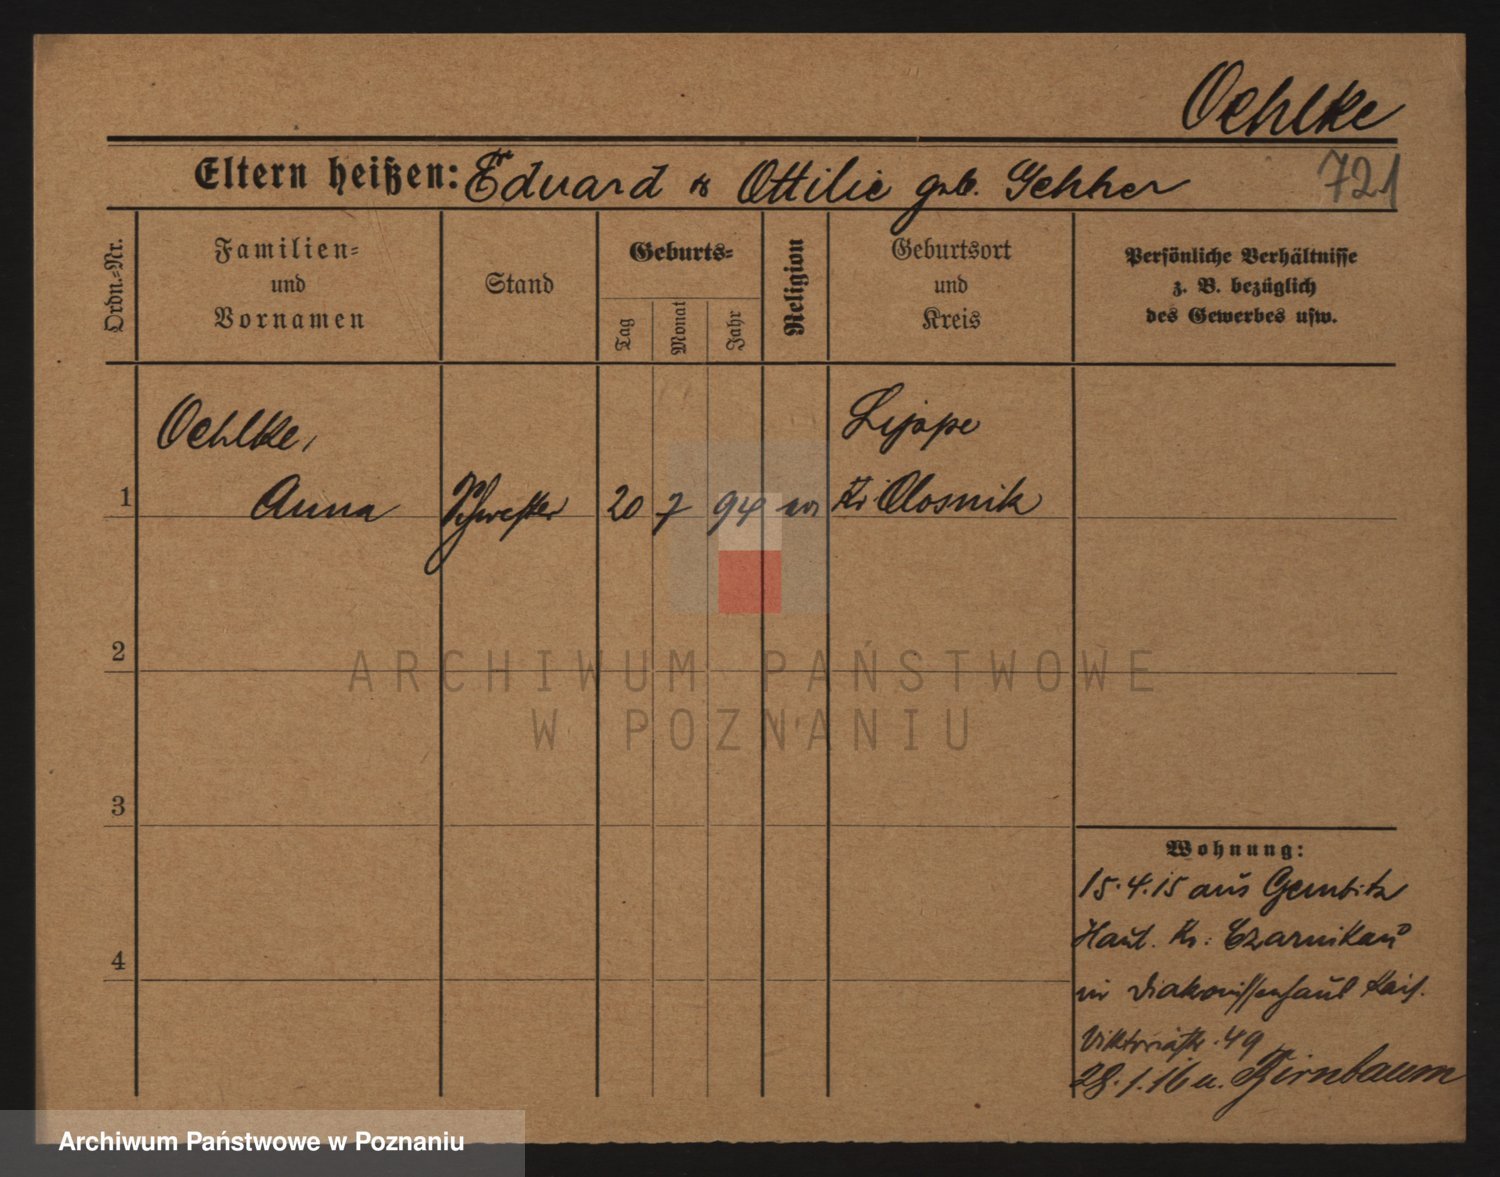 Oehlke
Eltern heißen: Eduard & Ottilie geb. Gehher
721
Ordn.-Nr.
Familien-
und
Vornamen
Stand
Geburts-
Tag
Monat
Jahr
Religion
Geburtsort
und
Kreis
Persönliche Verhältnisse
z. B. bezüglich
des Gewerbes usw.
Oehlke,
Lippe
1 Anna Schwester 20 7 94 ev Kr
2
ARCHIWUM PAŃSTWOWE
W POZNANIU
3
Wohnung:
15.4.15 aus Gembitz
Haul. Kr: Czarnikau
in Diakonissenhaus Kais.
Viktoriastr. 49
4
28.1.16 n. Birnbaum
Archiwum Państwowe w Poznaniu